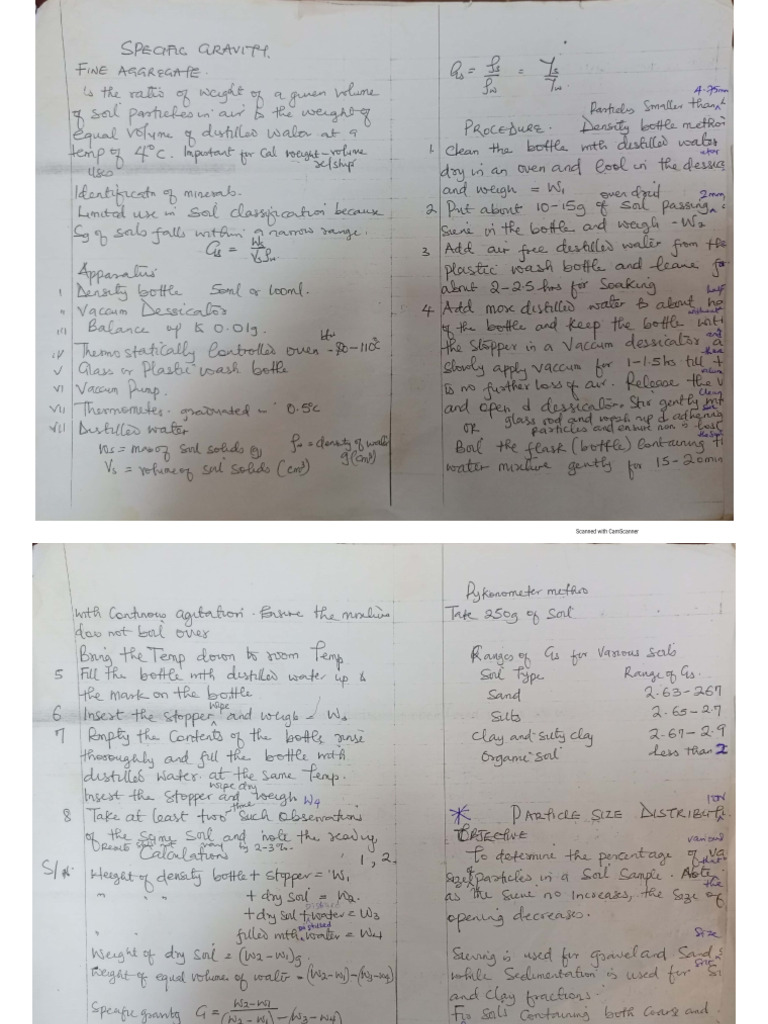 SPECIFIC GRAVITY.
FINE AGGREGATE.
Is the ratio of weight of a given volume
of soil particles in air to the weight of
equal volume of distilled water at a
temp of 4°C. Important for Cal weight-volume
Uses
Identificatn of minerals.
Limited use in Soil classification because
Sg of soils falls within a narrow range.
Gs = Ws / Vs ρw
Apparatus
i Density bottle 50ml or 100ml.
ii Vacuum Dessicator
iii Balance up to 0.01g.
iv Thermostatically Controlled oven -80-110°c
v Glass or Plastic wash bottle
vi Vaccum Pump.
vii Thermometer graduated 0.5°c
viii Distilled water
ms = mass of soil solids g ρw = density of water
Vs = volume of soil solids (cm³) g(cm³)
Gs = ρs/ρw = γs/γw
4.75mm
Particles Smaller than
PROCEDURE. Density bottle method
1 Clean the bottle with distilled water
dry in an oven and Cool in the dessic ator
and weigh = W1 oven dried
2 Put about 10-15g of Soil passing 2mm
Sieve in the bottle and weigh -W2
3 Add air free destilled water from the
plastic wash bottle and leave for
about 2-2.5 hrs for Soaking
4 Add more distilled water to about half
of the bottle and keep the bottle without
the stopper in a Vaccum dessicator and
Slowly apply vaccum for 1-1.5hs till there
is no further loss of air. Release the
and open d dessicator. Stir gently
OR glass rod and wash up d adhering
particles and ensure non is lost
Boil the flask (bottle) Containing
water mixture gently for 15-20min
Scanned with CamScanner
with Continous agitation. Ensure the mixture
does not boil over
Bring the Temp down to room Temp
5 Fill the bottle with distilled water up to
the mark on the bottle
6 Insert the stopper wipe and weigh =
7 Empty the Contents of the bottle rinse
thoroughly and fill the bottle with
distilled Water at the same Temp.
Insert the Stopper wipe dry and weigh W4
8 Take at least two three Such Observations
of the Same Soil and note the reading,
Results vary by 2-3%.
Calculations
S/n 1, 2.
Weight of density bottle + stopper = W1
" " + dry soil = W2
" + dry soil + water = W3
" filled with distilled water = W4
Weight of dry soil = (W2-W1)g
Weight of equal volume of water = (W2-W1)-(W3-W4)
Specific gravity G = W2-W1 / (W2-W1)-(W3-W4)
Pykonometer method
Take 250g of Soil
Ranges of Gs for Various Soils
Soil Type Range of Gs.
Sand 2.63-267
Silts 2.65-2.7
Clay and Silty clay 2.67-2.9
Organic Soil less than 2
* PARTICLE SIZE DISTRIBUT ION
OBJECTIVE
To determine the percentage of various
Size of particles in a Soil Sample. Note that
as the Sieve no Increases, the Size of the
opening decreases.
Sieving is used for gravel and Sand Size
while Sedimentation is used for
and Clay fractions.
For Soils Containing both Coarse and